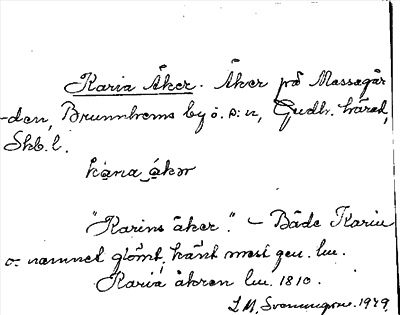 Karia Åker. Åker på Massagår
-den, Brunnhems by o. s:n, Gudh. härad,
Skb. l.
"Karins åker". - Både Karin
o. namnet glömt, känt mest gen. lm.
Karia åkren lm. 1810.
L. M. Svenungson. 1929.